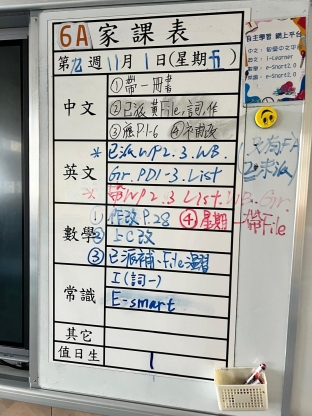 6A 家課表
第九週11月1日(星期五)
中文
①帶一冊書
②已派黃File,詞,作
③應P1-6 ④補改
英文
* 已派WP2.3.WB.
Gr.PD1-3.List
* 帶WP2.3 List.WB.Gr.
數學
① 作改P.28 ④星期一帶File
② 上C改
③ 已派補.File溫習
常識
I(詞一)
E-smart
其它
值日生
1
自主學習 網上平台
i-Learner
e-Smart2.0
e-Smart2.0